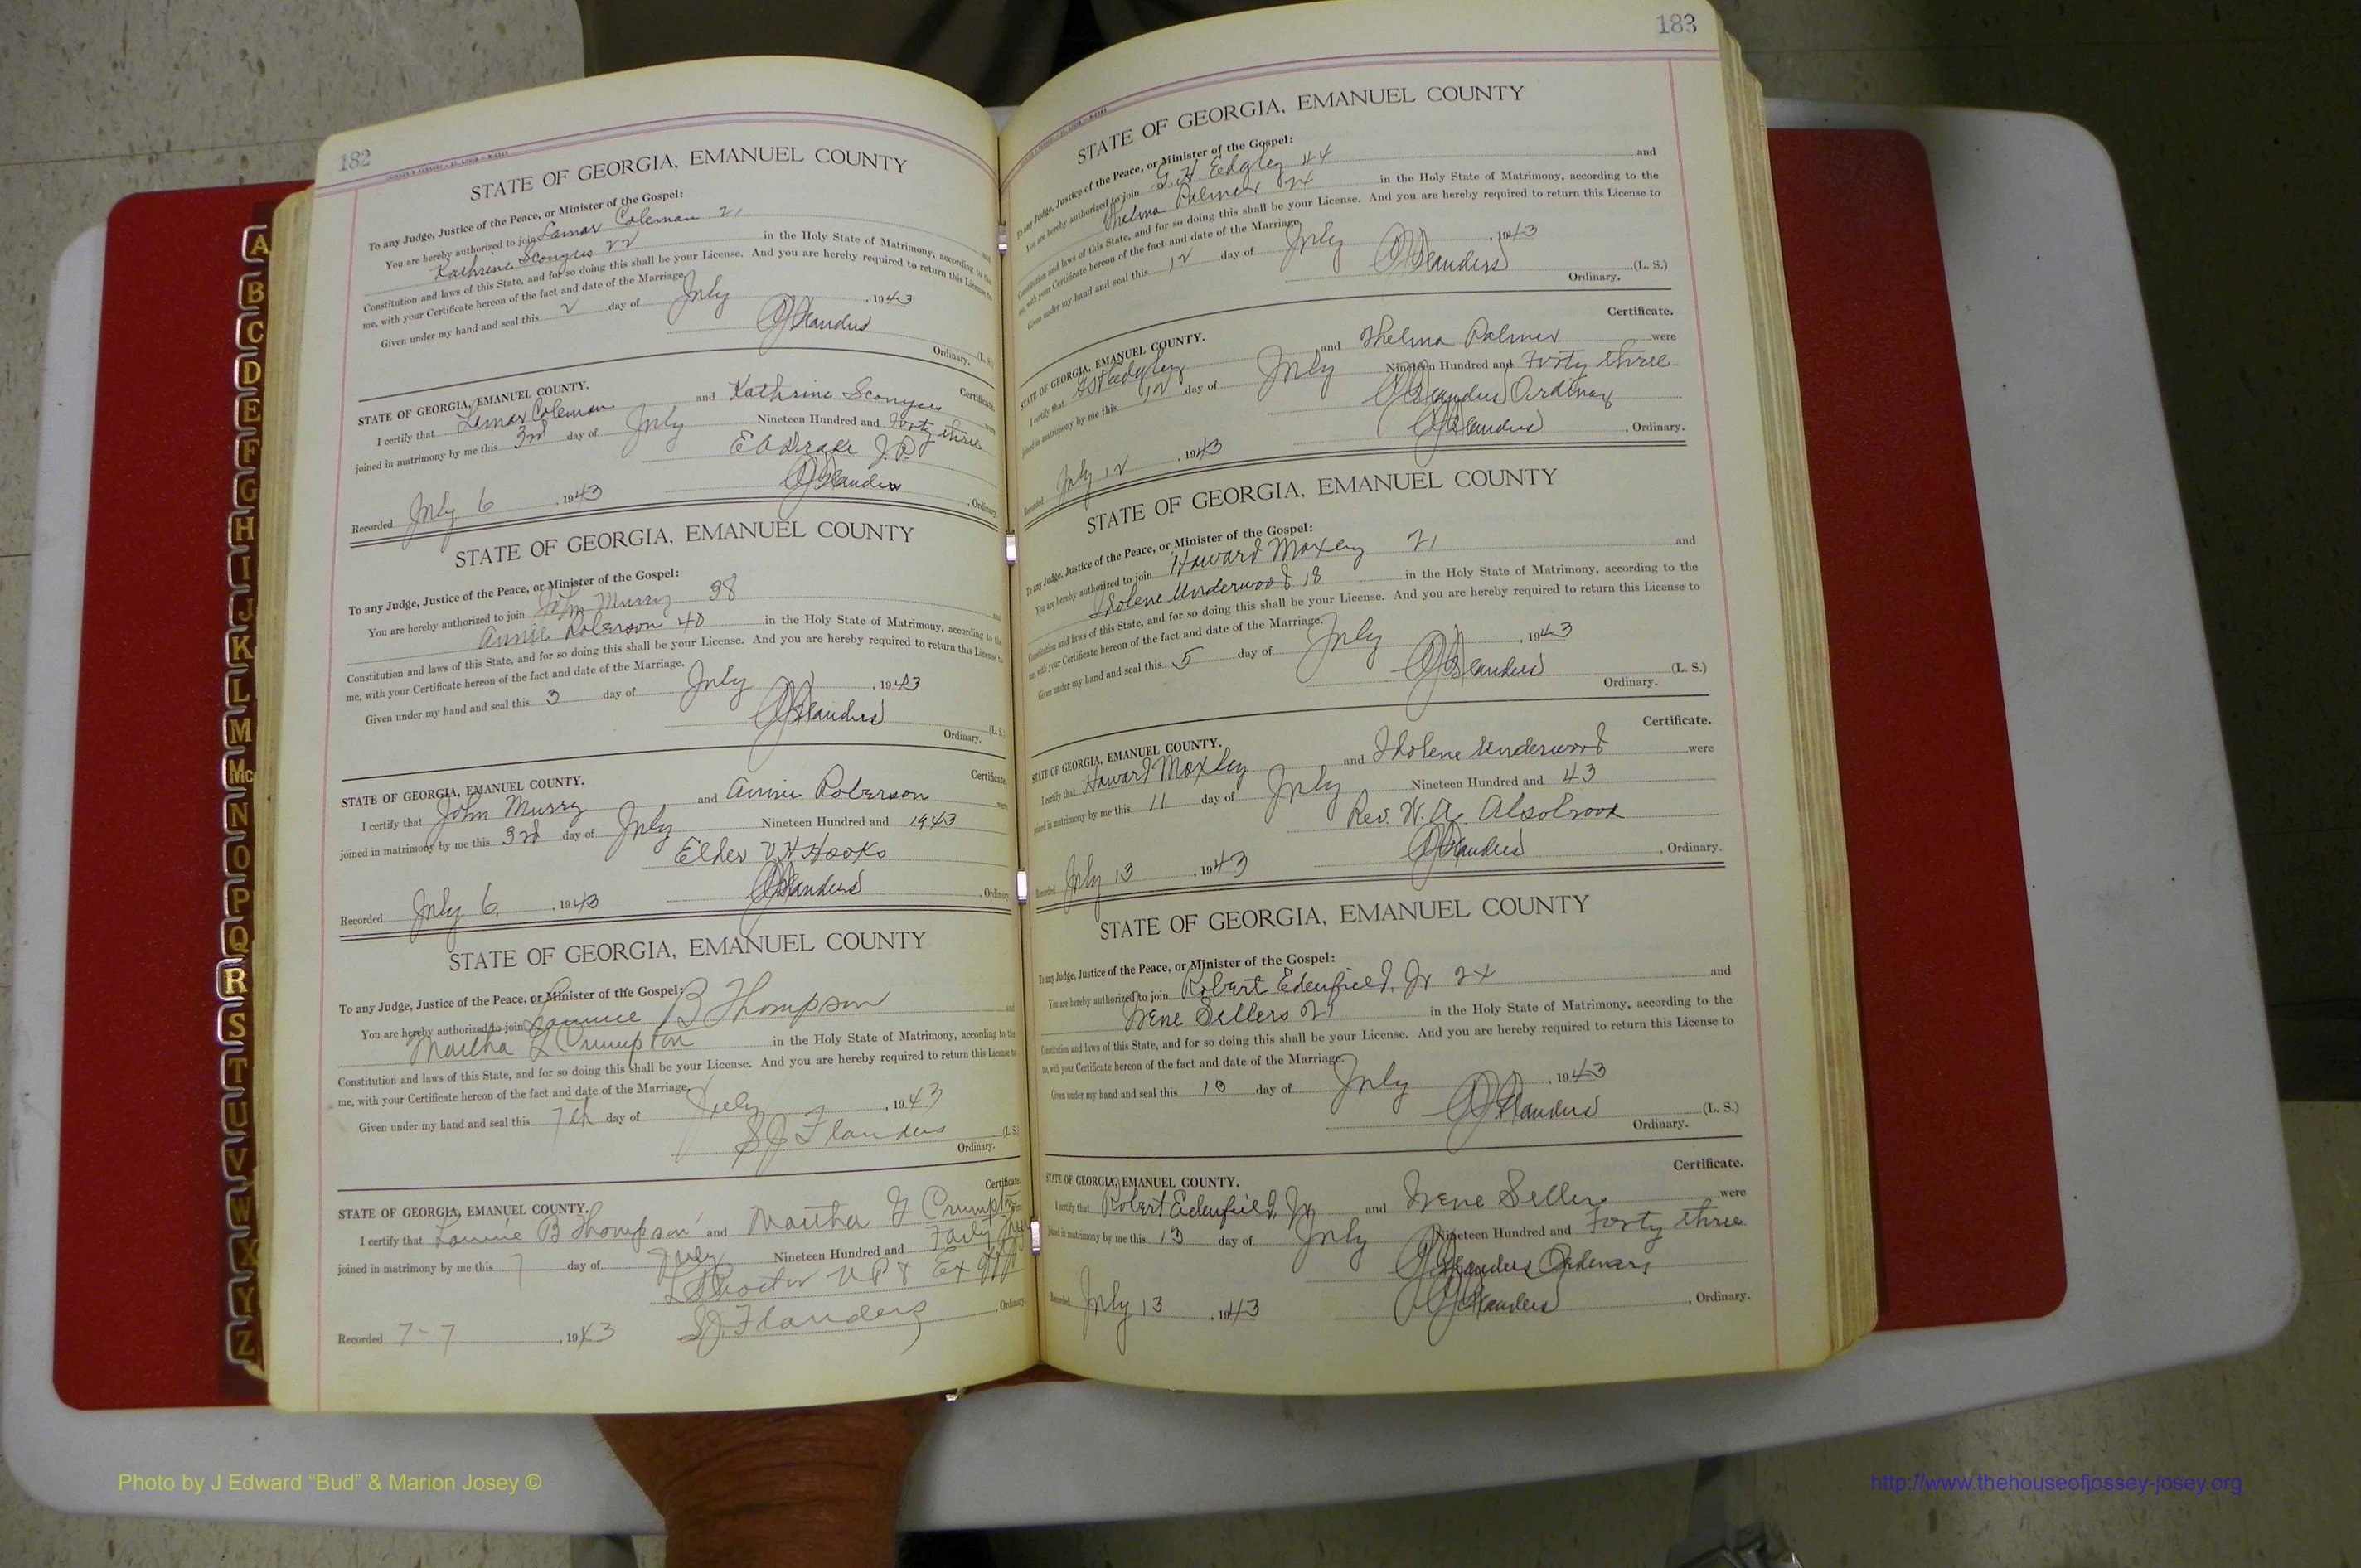 182
STATE OF GEORGIA, EMANUEL COUNTY
To any Judge, Justice of the Peace, or Minister of the Gospel:
You are hereby authorized to join Lamar Coleman 21 and
Kathrine Scongers 22 in the Holy State of Matrimony, according to the
Constitution and laws of this State, and for so doing this shall be your License. And you are hereby required to return this License to
me, with your Certificate hereon of the fact and date of the Marriage.
Given under my hand and seal this 2 day of July, 1943
Flanders (L. S.)
Ordinary.
Certificate.
STATE OF GEORGIA, EMANUEL COUNTY.
I certify that Lamar Coleman and Kathrine were
joined in matrimony by me this 3rd day of July Nineteen Hundred and Forty three
E A Drake J.P.
Recorded July 6, 1943 Flanders, Ordinary.
STATE OF GEORGIA, EMANUEL COUNTY
To any Judge, Justice of the Peace, or Minister of the Gospel:
You are hereby authorized to join John Murry 38 and
Annie Roberson 40 in the Holy State of Matrimony, according to the
Constitution and laws of this State, and for so doing this shall be your License. And you are hereby required to return this License to
me, with your Certificate hereon of the fact and date of the Marriage.
Given under my hand and seal this 3 day of July, 1943
Flanders (L. S.)
Ordinary.
Certificate.
STATE OF GEORGIA, EMANUEL COUNTY.
I certify that John Murry and Annie Roberson were
joined in matrimony by me this 3rd day of July Nineteen Hundred and 1943
Elder V H Hooks
Recorded July 6, 1943 Flanders, Ordinary
STATE OF GEORGIA, EMANUEL COUNTY
To any Judge, Justice of the Peace, or Minister of the Gospel:
You are hereby authorized to join B Thompson and
Martha Crumpton in the Holy State of Matrimony, according to the
Constitution and laws of this State, and for so doing this shall be your License. And you are hereby required to return this License to
me, with your Certificate hereon of the fact and date of the Marriage.
Given under my hand and seal this 7th day of July, 1943
S J Flanders (L. S.)
Ordinary.
Certificate.
STATE OF GEORGIA, EMANUEL COUNTY.
I certify that B Thompson and Martha Crumpton were
joined in matrimony by me this 7 day of July Nineteen Hundred and Forty
Recorded 7-7, 1943 S J. Flanders, Ordinary.
183
STATE OF GEORGIA, EMANUEL COUNTY
To any Judge, Justice of the Peace, or Minister of the Gospel:
You are hereby authorized to join G. H Edgley 44 and
Thelma Palmer 24 in the Holy State of Matrimony, according to the
Constitution and laws of this State, and for so doing this shall be your License. And you are hereby required to return this License to
me, with your Certificate hereon of the fact and date of the Marriage.
Given under my hand and seal this 12 day of July, 1943
Flanders (L. S.)
Ordinary.
Certificate.
STATE OF GEORGIA, EMANUEL COUNTY.
I certify that G H Edgley and Thelma Palmer were
joined in matrimony by me this 12 day of July Nineteen Hundred and Forty three
Flanders Ordinary
Recorded July 12, 1943 Flanders, Ordinary.
STATE OF GEORGIA, EMANUEL COUNTY
To any Judge, Justice of the Peace, or Minister of the Gospel:
You are hereby authorized to join Howard Moxley 21 and
Underwood 18 in the Holy State of Matrimony, according to the
Constitution and laws of this State, and for so doing this shall be your License. And you are hereby required to return this License to
me, with your Certificate hereon of the fact and date of the Marriage.
Given under my hand and seal this 5 day of July, 1943
Flanders (L. S.)
Ordinary.
Certificate.
STATE OF GEORGIA, EMANUEL COUNTY.
I certify that Howard Moxley and Underwood were
joined in matrimony by me this 11 day of July Nineteen Hundred and 43
Rev. W. A. Alsobrook
Recorded July 13, 1943 Flanders, Ordinary.
STATE OF GEORGIA, EMANUEL COUNTY
To any Judge, Justice of the Peace, or Minister of the Gospel:
You are hereby authorized to join Robert Edenfield, Jr 24 and
Irene Sellers 21 in the Holy State of Matrimony, according to the
Constitution and laws of this State, and for so doing this shall be your License. And you are hereby required to return this License to
me, with your Certificate hereon of the fact and date of the Marriage.
Given under my hand and seal this 13 day of July, 1943
Flanders (L. S.)
Ordinary.
Certificate.
STATE OF GEORGIA, EMANUEL COUNTY.
I certify that Robert Edenfield, Jr and Irene Sellers were
joined in matrimony by me this 13 day of July Nineteen Hundred and Forty three
Flanders Ordinary
Recorded July 13, 1943 Flanders, Ordinary.
A
B
C
D
E
F
G
H
I
J
K
L
M
Mc
N
O
P
Q
R
S
T
U
V
W
X
Y
Z
Photo by J Edward “Bud” & Marion Josey ©
http://www.thehouseofjossey-josey.org